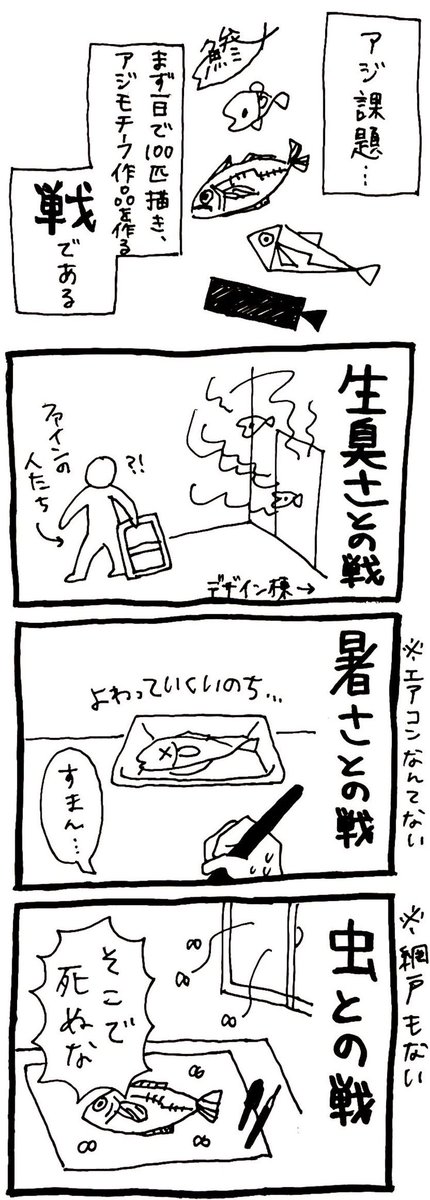 アジ課題…
鯵
まず一日で100匹描き、
アジモチーフ作品を作る
戦である
生臭さとの戦
?!
ファインの
人たち
デザイン棟→
※エアコンなんてない
暑さとの戦
よわっていくいのち…
すまん…
※網戸もない
虫との戦
そこで
死ぬな